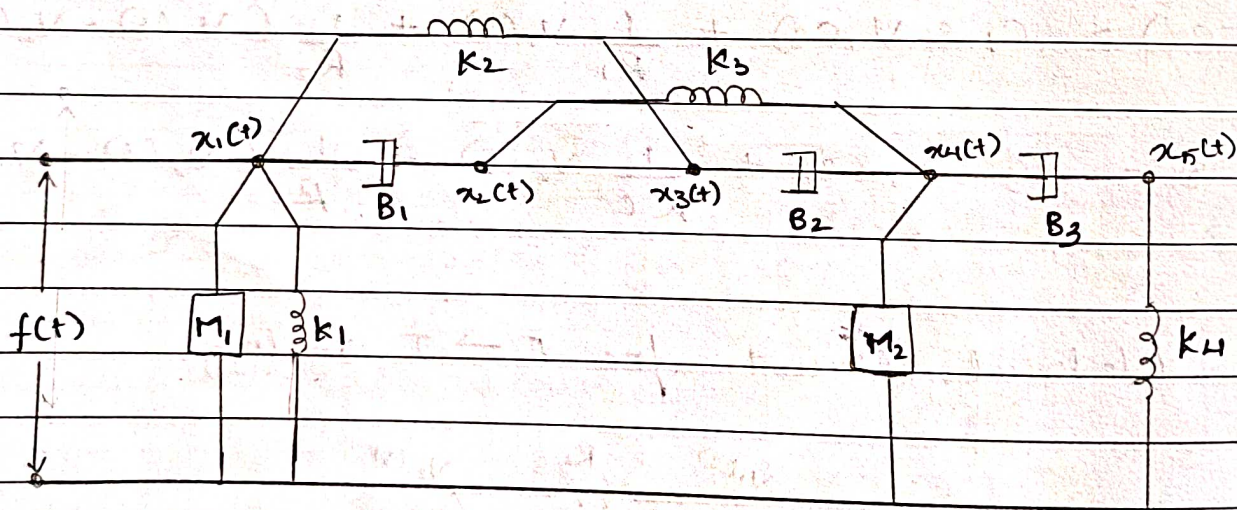 K2
K3
x1(t)
B1
x2(t)
x3(t)
B2
x4(t)
B3
x5(t)
f(t)
M1
K1
M2
K4